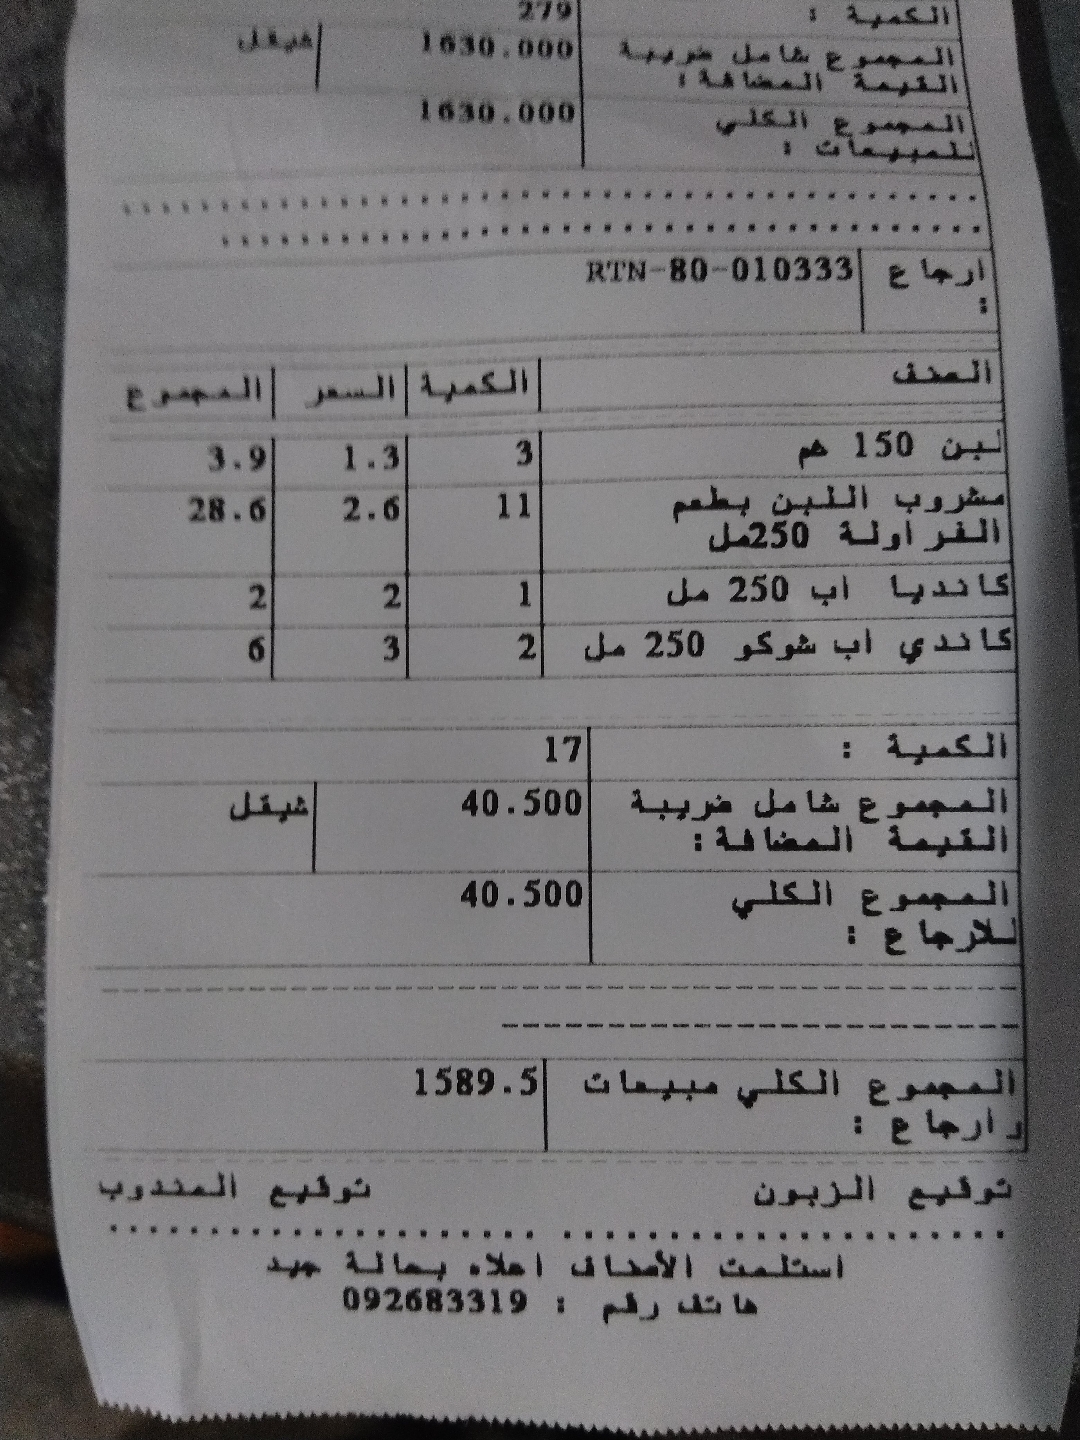 الكمية : 279
المجموع شامل ضريبة 1630.000 شيقل
القيمة المضافة:
المجموع الكلي 1630.000
للمبيعات :
ارجاع RTN-80-010333
:
الصنف الكمية السعر المجموع
لبن 150 غم 3 1.3 3.9
مشروب اللبن بطعم 11 2.6 28.6
الفراولة 250مل
كانديا اب 250 مل 1 2 2
كاندي اب شوكو 250 مل 2 3 6
الكمية : 17
المجموع شامل ضريبة 40.500 شيقل
القيمة المضافة:
المجموع الكلي 40.500
للارجاع :
المجموع الكلي مبيعات 1589.5
وارجاع :
توقيع الزبون توقيع المندوب
استلمت الأصناف اعلاه بحالة جيد
هاتف رقم : 092683319